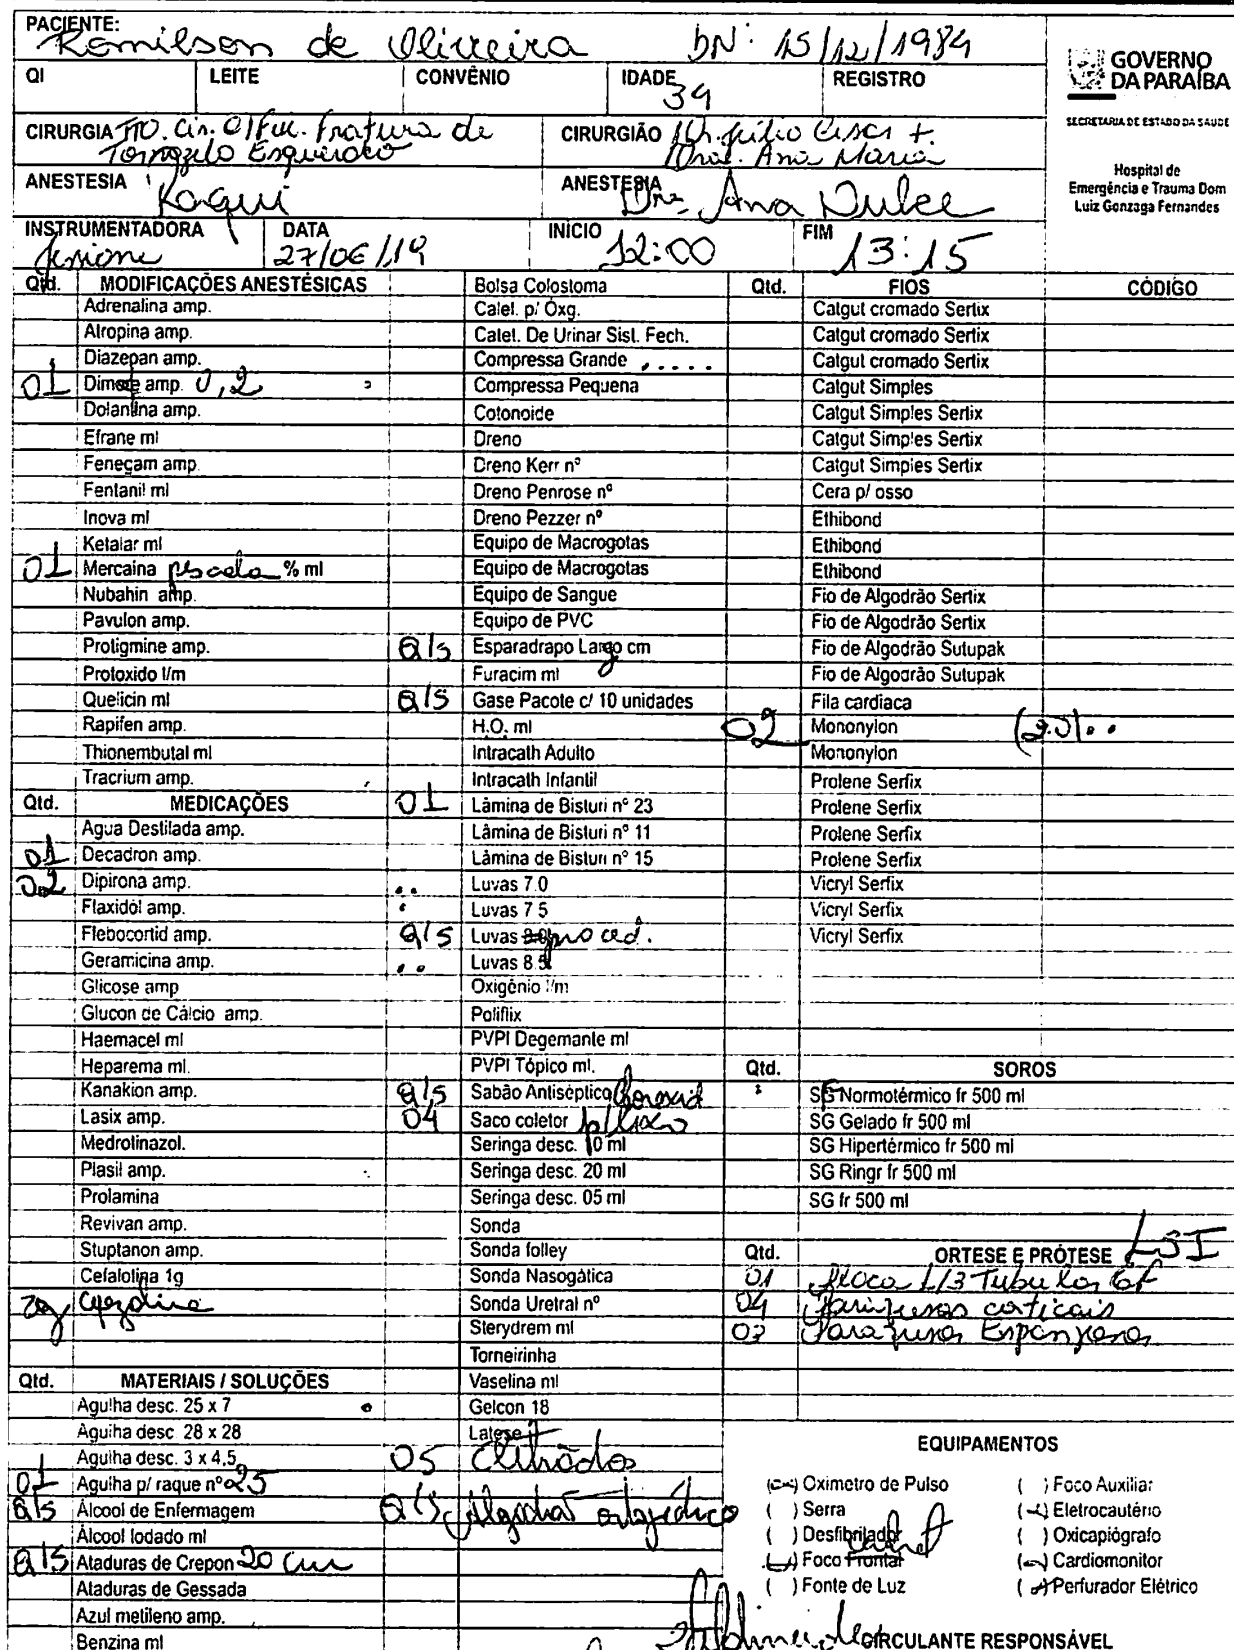 PACIENTE: Romilson de Oliveira DN: 15/12/1984
GOVERNO DA PARAÍBA
SECRETARIA DE ESTADO DA SAÚDE
Hospital de Emergência e Trauma Dom Luiz Gonzaga Fernandes
QI LEITE CONVÊNIO IDADE 34 REGISTRO
CIRURGIA TTO. Cir. Fratura de Tornozelo Esquerdo
CIRURGIÃO Dr. Júlio Cesar + Dra. Ana Maria
ANESTESIA Raqui ANESTESIA Dra Ana Dulce
INSTRUMENTADORA DATA 27/06/19 INÍCIO 12:00 FIM 13:15
Qtd. MODIFICAÇÕES ANESTÉSICAS
Adrenalina amp.
Atropina amp.
Diazepan amp.
01 Dimorf amp. 0,2
Dolantina amp.
Efrane ml
Fenegam amp.
Fentanil ml
Inova ml
Ketalar ml
01 Mercaina pesada % ml
Nubahin amp.
Pavulon amp.
Protigmine amp.
Protoxido l/m
Quelicin ml
Rapifen amp.
Thionembutal ml
Tracrium amp.
Qtd. MEDICAÇÕES
Agua Destilada amp.
01 Decadron amp.
02 Dipirona amp.
Flaxidol amp.
Flebocortid amp.
Geramicina amp.
Glicose amp
Glucon de Cálcio amp.
Haemacel ml
Heparema ml.
Kanakion amp.
Lasix amp.
Medrolinazol.
Plasil amp.
Prolamina
Revivan amp.
Stuptanon amp.
Cefalotina 1g
2g
Qtd. MATERIAIS / SOLUÇÕES
Agulha desc. 25 x 7
Agulha desc. 28 x 28
Agulha desc. 3 x 4,5
01 Agulha p/ raque nº 25
Q/S Álcool de Enfermagem
Álcool Iodado ml
Q/S Ataduras de Crepon 20 cm
Ataduras de Gessada
Azul metileno amp.
Benzina ml
Bolsa Colostoma
Catel. p/ Óxg.
Catel. De Urinar Sist. Fech.
Compressa Grande
Compressa Pequena
Cotonoide
Dreno
Dreno Kerr nº
Dreno Penrose nº
Dreno Pezzer nº
Equipo de Macrogotas
Equipo de Macrogotas
Equipo de Sangue
Equipo de PVC
Q/S Esparadrapo Largo cm
Furacim ml
Q/S Gase Pacote c/ 10 unidades
H.O. ml
Intracath Adulto
Intracath Infantil
01 Lâmina de Bisturi nº 23
Lâmina de Bisturi nº 11
Lâmina de Bisturi nº 15
Luvas 7.0
Luvas 7.5
Q/S Luvas proced.
Luvas 8.5
Oxigênio l/m
Poliflix
PVPI Degemante ml
PVPI Tópico ml.
Q/S Sabão Antiséptico
04 Saco coletor p/ lixo
Seringa desc. 10 ml
Seringa desc. 20 ml
Seringa desc. 05 ml
Sonda
Sonda folley
Sonda Nasogática
Sonda Uretral nº
Sterydrem ml
Torneirinha
Vaselina ml
Gelcon 18
Latese
05 eletrodos
Q/S Algodão ortopédico
Qtd. FIOS CÓDIGO
Catgut cromado Sertix
Catgut cromado Sertix
Catgut cromado Sertix
Catgut Simples
Catgut Simples Sertix
Catgut Simples Sertix
Catgut Simples Sertix
Cera p/ osso
Ethibond
Ethibond
Ethibond
Fio de Algodrão Sertix
Fio de Algodrão Sertix
Fio de Algodrão Sutupak
Fio de Algodrão Sutupak
Fila cardiaca
02 Mononylon (2.0)
Mononylon
Prolene Serfix
Prolene Serfix
Prolene Serfix
Prolene Serfix
Vicryl Serfix
Vicryl Serfix
Vicryl Serfix
Qtd. SOROS
SF Normotérmico fr 500 ml
SG Gelado fr 500 ml
SG Hipertérmico fr 500 ml
SG Ringr fr 500 ml
SG fr 500 ml
Qtd. ORTESE E PRÓTESE
01 Placa 1/3 Tubular 6F
04 Parafusos corticais
02 Parafusos Esponjosos
EQUIPAMENTOS
Oximetro de Pulso ( ) Foco Auxiliar
( ) Serra Eletrocautério
( ) Desfibrilador ( ) Oxicapiógrafo
Foco Frontal Cardiomonitor
( ) Fonte de Luz Perfurador Elétrico
CIRCULANTE RESPONSÁVEL